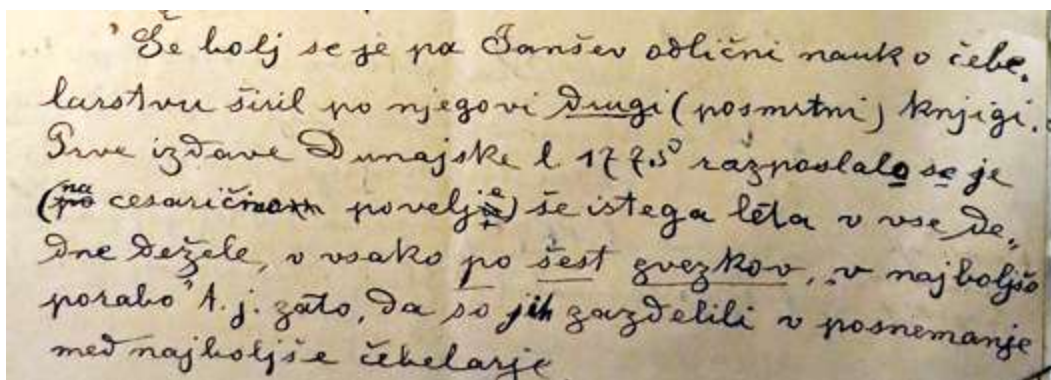 "Še bolj se je pa Janšev odlični nauk o čebe„
larstvu širil po njegovi drugi (posmrtni) knjigi.
Prve izdave Dunajske l. 1775 razposlalo se je
(na cesaričino povelje) še istega lėta v vse de„
dne dežele, v vsako po šest zvezkov, „v najboljšo
porabo" t. j. zato, da so jih razdelili v posnemanje
med najboljše čebelarje